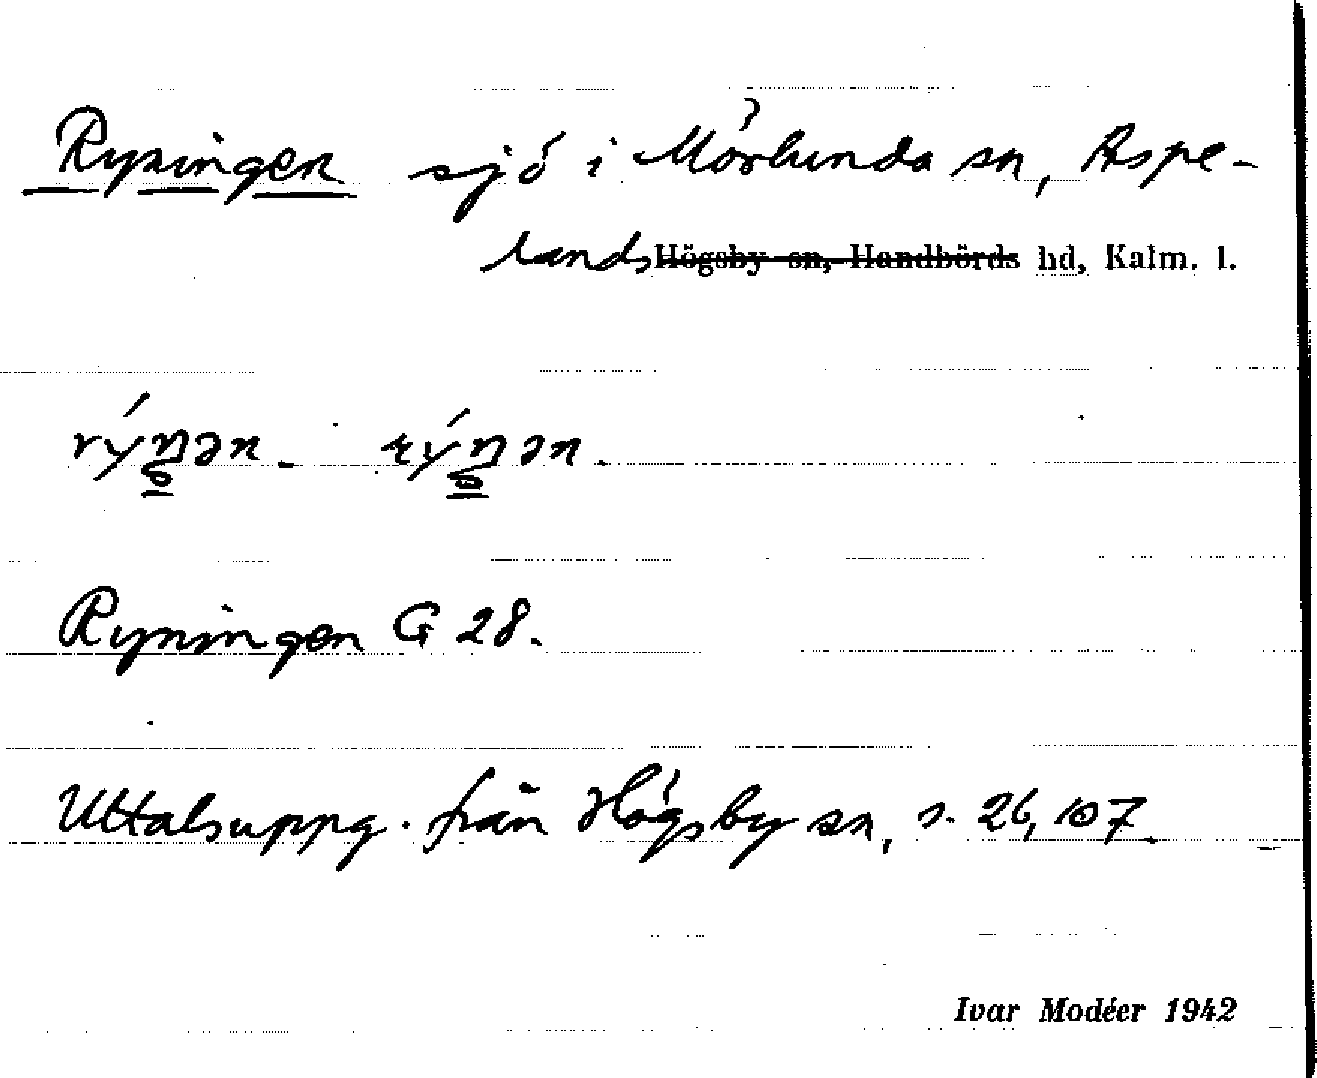 Ryningen sjö i Mörlunda sn, Aspe-
lands Högsby sn, Handbörds hd, Kalm. l.
Ryningen G 28.
Uttalsuppg. från Högsby sn, s. 26, 107.
Ivar Modéer 1942